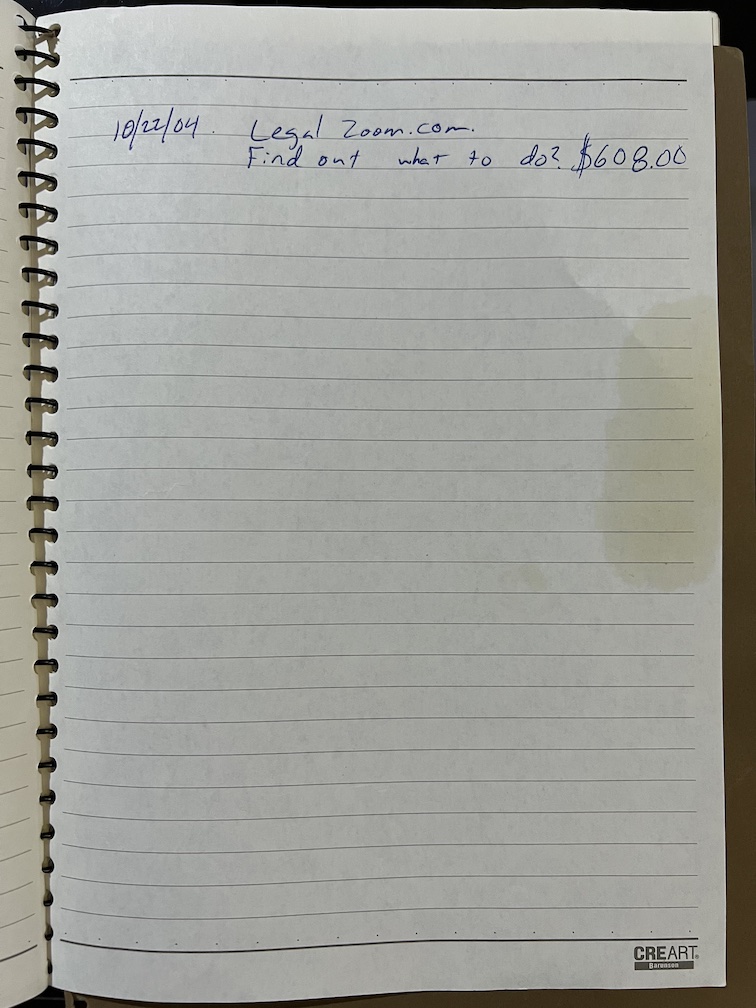 10/22/04. Legal Zoom.com.
Find out what to do? $608.00
CREART®
Barenson